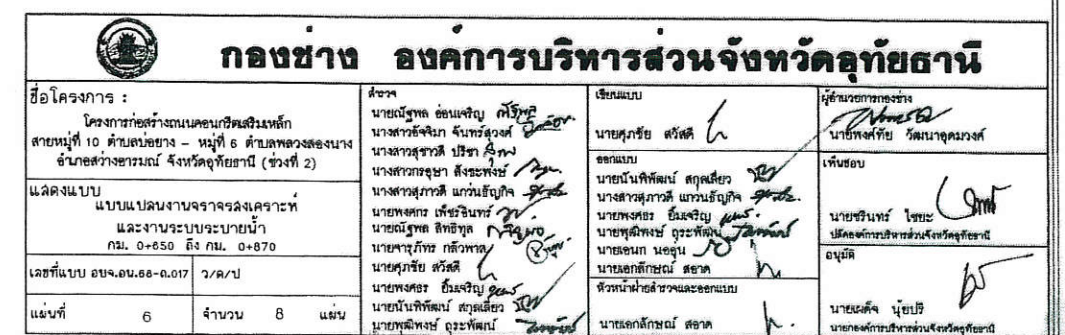 กองช่าง องค์การบริหารส่วนจังหวัดอุทัยธานี
ชื่อโครงการ :
โครงการก่อสร้างถนนคอนกรีตเสริมเหล็ก
สายหมู่ที่ 10 ตำบลบ่อยาง - หมู่ที่ 6 ตำบลพลวงสองนาง
อำเภอสว่างอารมณ์ จังหวัดอุทัยธานี (ช่วงที่ 2)
แสดงแบบ
แบบแปลนงานจราจรสงเคราะห์
และงานระบบระบายน้ำ
กม. 0+650 ถึง กม. 0+870
เลขที่แบบ อบจ.อน.68-ถ.017 ว/ด/ป
แผ่นที่ 6 จำนวน 8 แผ่น
สำรวจ
นายณัฐพล อ่อนเจริญ
นางสาวอัจจิมา จันทร์สุวงศ์
นางสาวสุชาวดี ปรีชา
นางสาวกรอุษา สังขะพงษ์
นางสาวสุภาวดี แกว่นธัญกิจ
นายพงศกร เพ็ชรอินทร์
นายณัฐพล สิทธิกูล
นายจารุภัทร กลัวพาล
นายศุภชัย สวัสดี
นายพงศธร ยิ้มเจริญ
นายนันพิพัฒน์ สกุลเลี่ยว
นายพุฒิพงษ์ ถุระพัฒน์
เขียนแบบ
นายศุภชัย สวัสดี
ออกแบบ
นายนันพิพัฒน์ สกุลเลี่ยว
นางสาวสุภาวดี แกว่นธัญกิจ
นายพงศธร ยิ้มเจริญ
นายพุฒิพงษ์ ถุระพัฒน์
นายเอนก นอคุน
นายเอกลักษณ์ สอาด
หัวหน้าฝ่ายสำรวจและออกแบบ
นายเอกลักษณ์ สอาด
ผู้อำนวยการกองช่าง
นายพงศ์ทัย วัฒนาอุดมวงศ์
เห็นชอบ
นายชรินทร์ ไชยะ
ปลัดองค์การบริหารส่วนจังหวัดอุทัยธานี
อนุมัติ
นายเผด็จ นุ้ยปรี
นายกองค์การบริหารส่วนจังหวัดอุทัยธานี